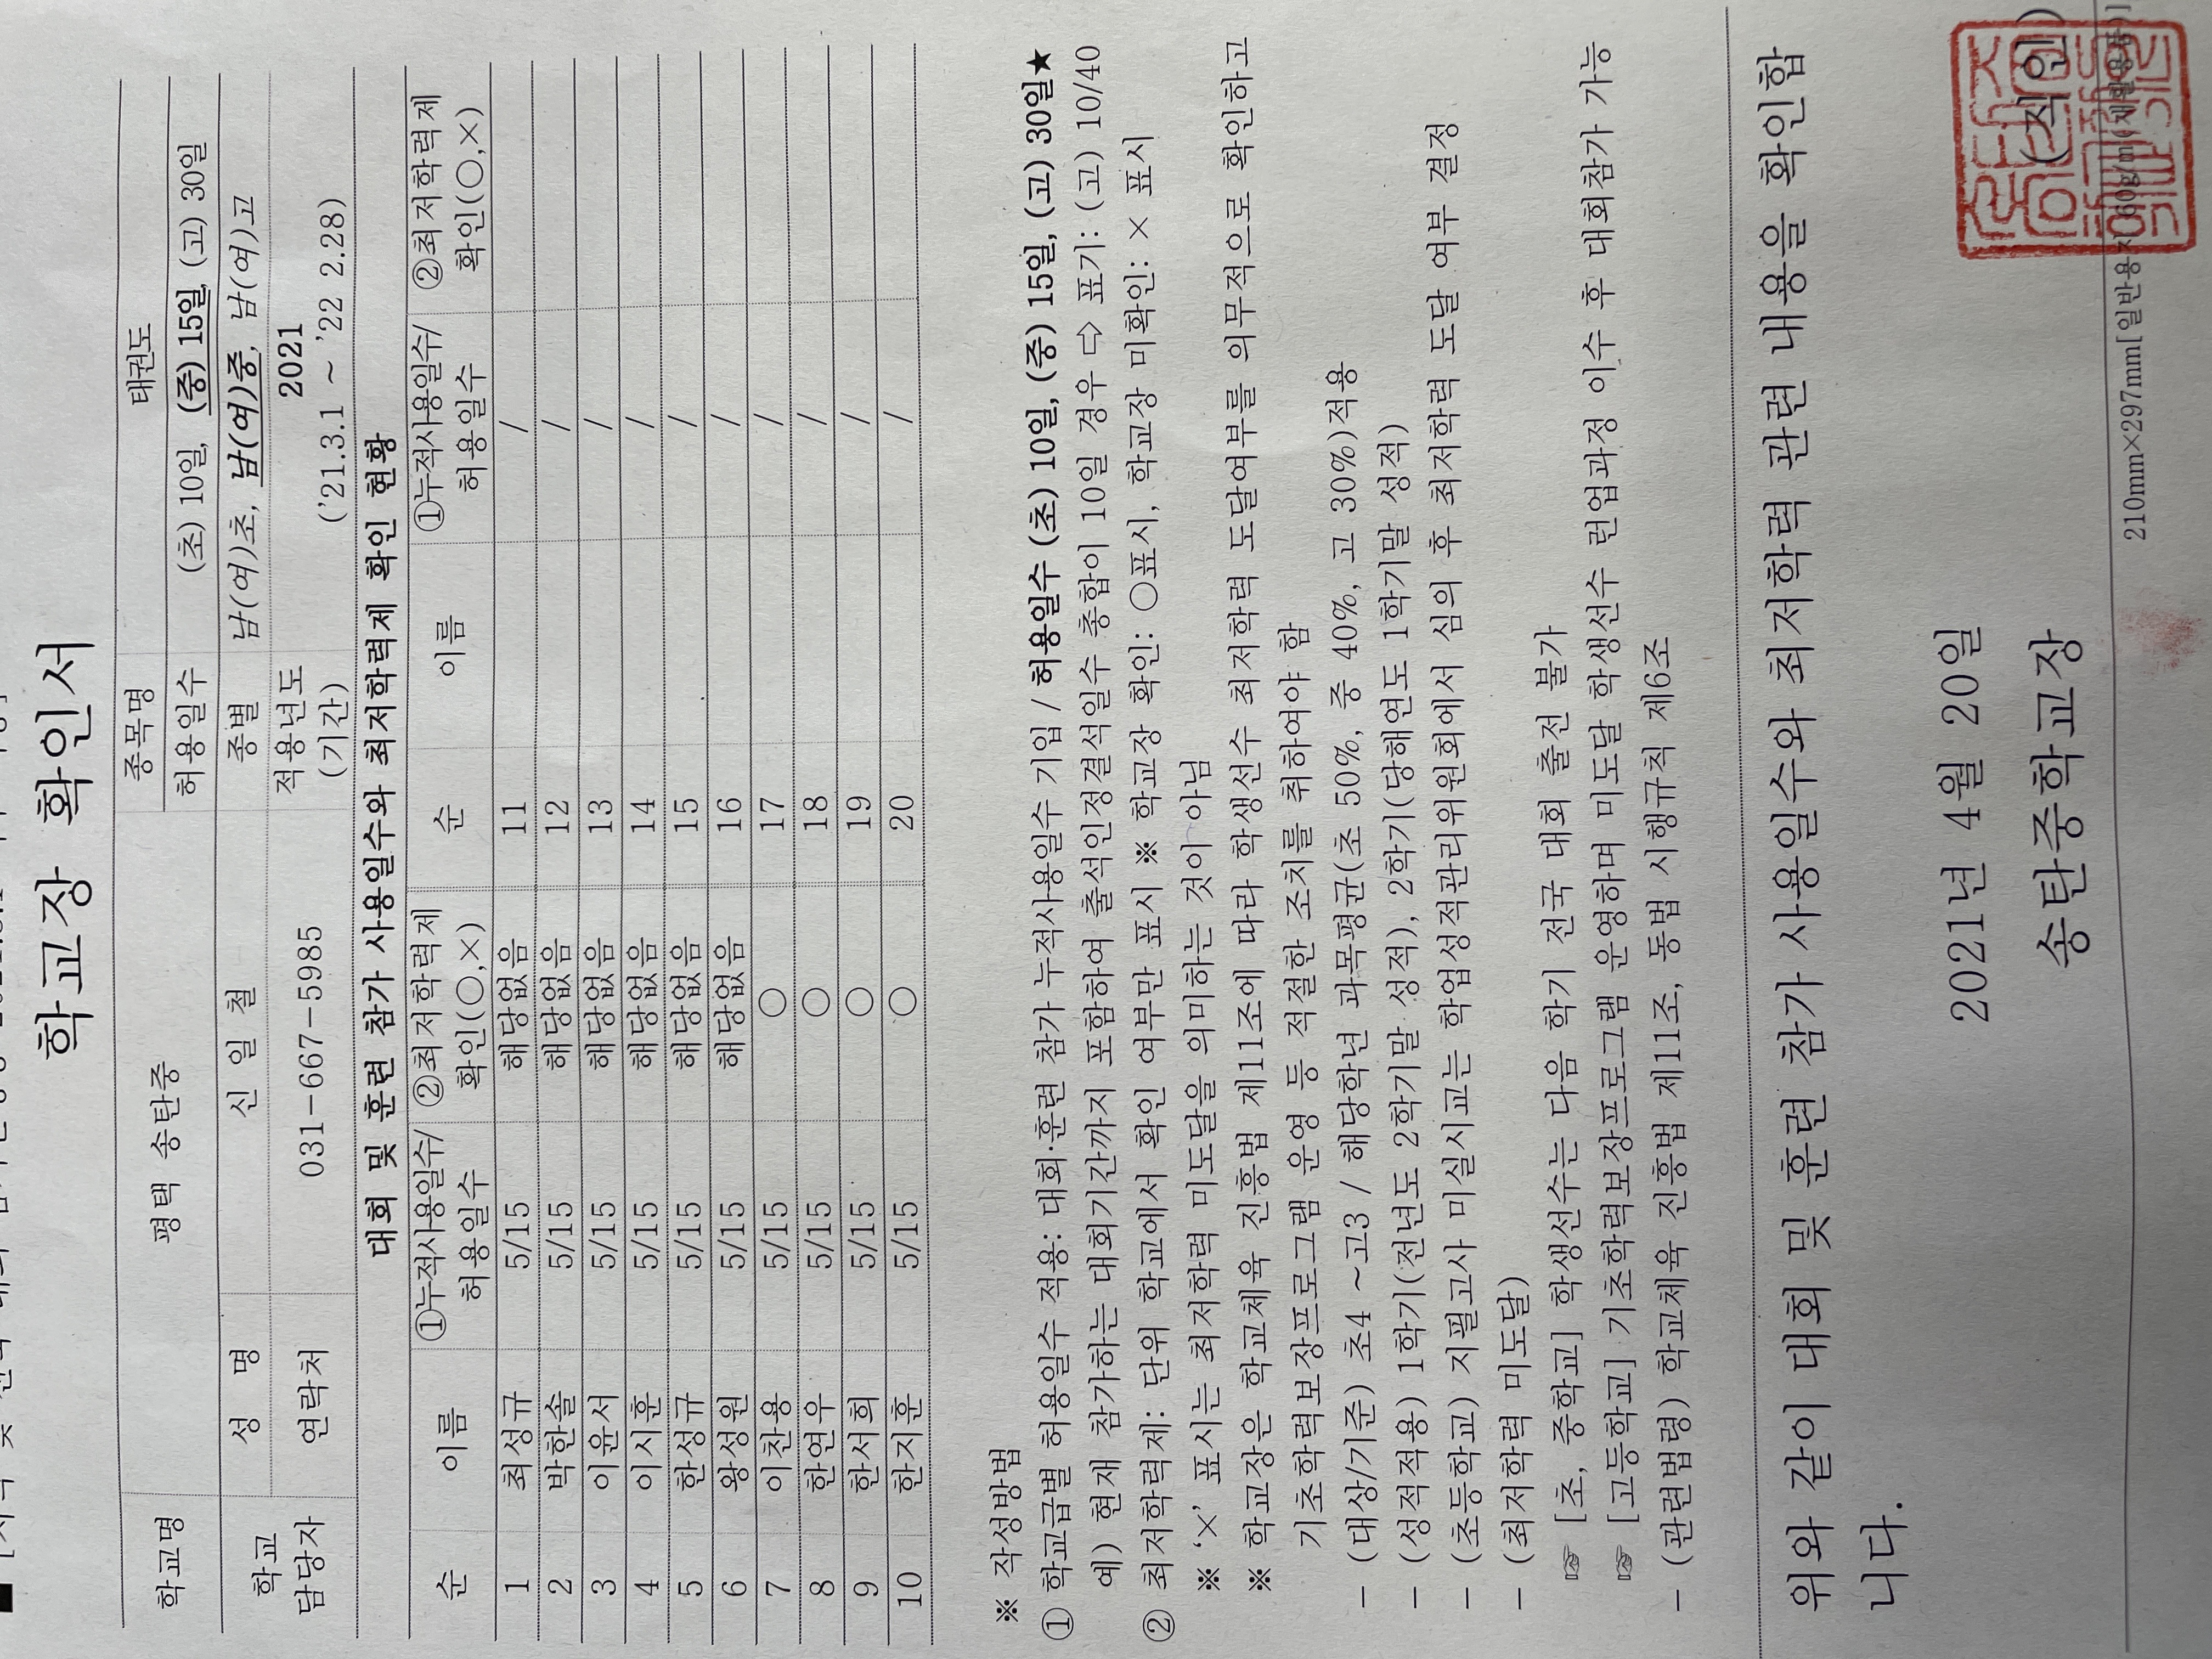 학교장 확인서
학교명 평택 송탄중 종목명 태권도
허용일수 (초) 10일, (중) 15일, (고) 30일
학교 담당자 성 명 신 일 철 종별 남(여)초, 남(여)중, 남(여)고
연락처 031-667-5985 적용년도 (기간) 2021
('21.3.1 ~ '22 2.28)
대회 및 훈련 참가 사용일수와 최저학력제 확인 현황
순 이름 ①누적사용일수/ 허용일수 ②최저학력제 확인(○,×) 순 이름 ①누적사용일수/ 허용일수 ②최저학력제 확인(○,×)
1 최성규 5/15 해당없음 11 /
2 박한솔 5/15 해당없음 12 /
3 이윤서 5/15 해당없음 13 /
4 이시훈 5/15 해당없음 14 /
5 한성규 5/15 해당없음 15 /
6 왕성원 5/15 해당없음 16 /
7 이찬용 5/15 ○ 17 /
8 한연우 5/15 ○ 18 /
9 한서희 5/15 ○ 19 /
10 한지훈 5/15 ○ 20 /
※ 작성방법
① 학교급별 허용일수 적용: 대회·훈련 참가 누적사용일수 기입 / 허용일수 (초) 10일, (중) 15일, (고) 30일★
예) 현재 참가하는 대회기간까지 포함하여 출석인정결석일수 총합이 10일 경우 ⇨ 표기: (고) 10/40
② 최저학력제: 단위 학교에서 확인 여부만 표시 ※ 학교장 확인: ○표시, 학교장 미확인: × 표시
※ '×' 표시는 최저학력 미도달을 의미하는 것이 아님
※ 학교장은 학교체육 진흥법 제11조에 따라 학생선수 최저학력 도달여부를 의무적으로 확인하고
기초학력보장프로그램 운영 등 적절한 조치를 취하여야 함
- (대상/기준) 초4 ~고3 / 해당학년 과목평균(초 50%, 중 40%, 고 30%)적용
- (성적적용) 1학기(전년도 2학기말 성적), 2학기(당해연도 1학기말 성적)
- (초등학교) 지필고사 미실시교는 학업성적관리위원회에서 심의 후 최저학력 도달 여부 결정
- (최저학력 미도달)
☞ [초, 중학교] 학생선수는 다음 학기 전국 대회 출전 불가
☞ [고등학교] 기초학력보장프로그램 운영하며 미도달 학생선수 련업과정 이수 후 대회참가 가능
- (관련법령) 학교체육 진흥법 제11조, 동법 시행규칙 제6조
위와 같이 대회 및 훈련 참가 사용일수와 최저학력 관련 내용을 확인합
니다.
2021년 4월 20일
송탄중학교장 (직인)
210mm×297mm[일반용지 60g/㎡(재활용품)]